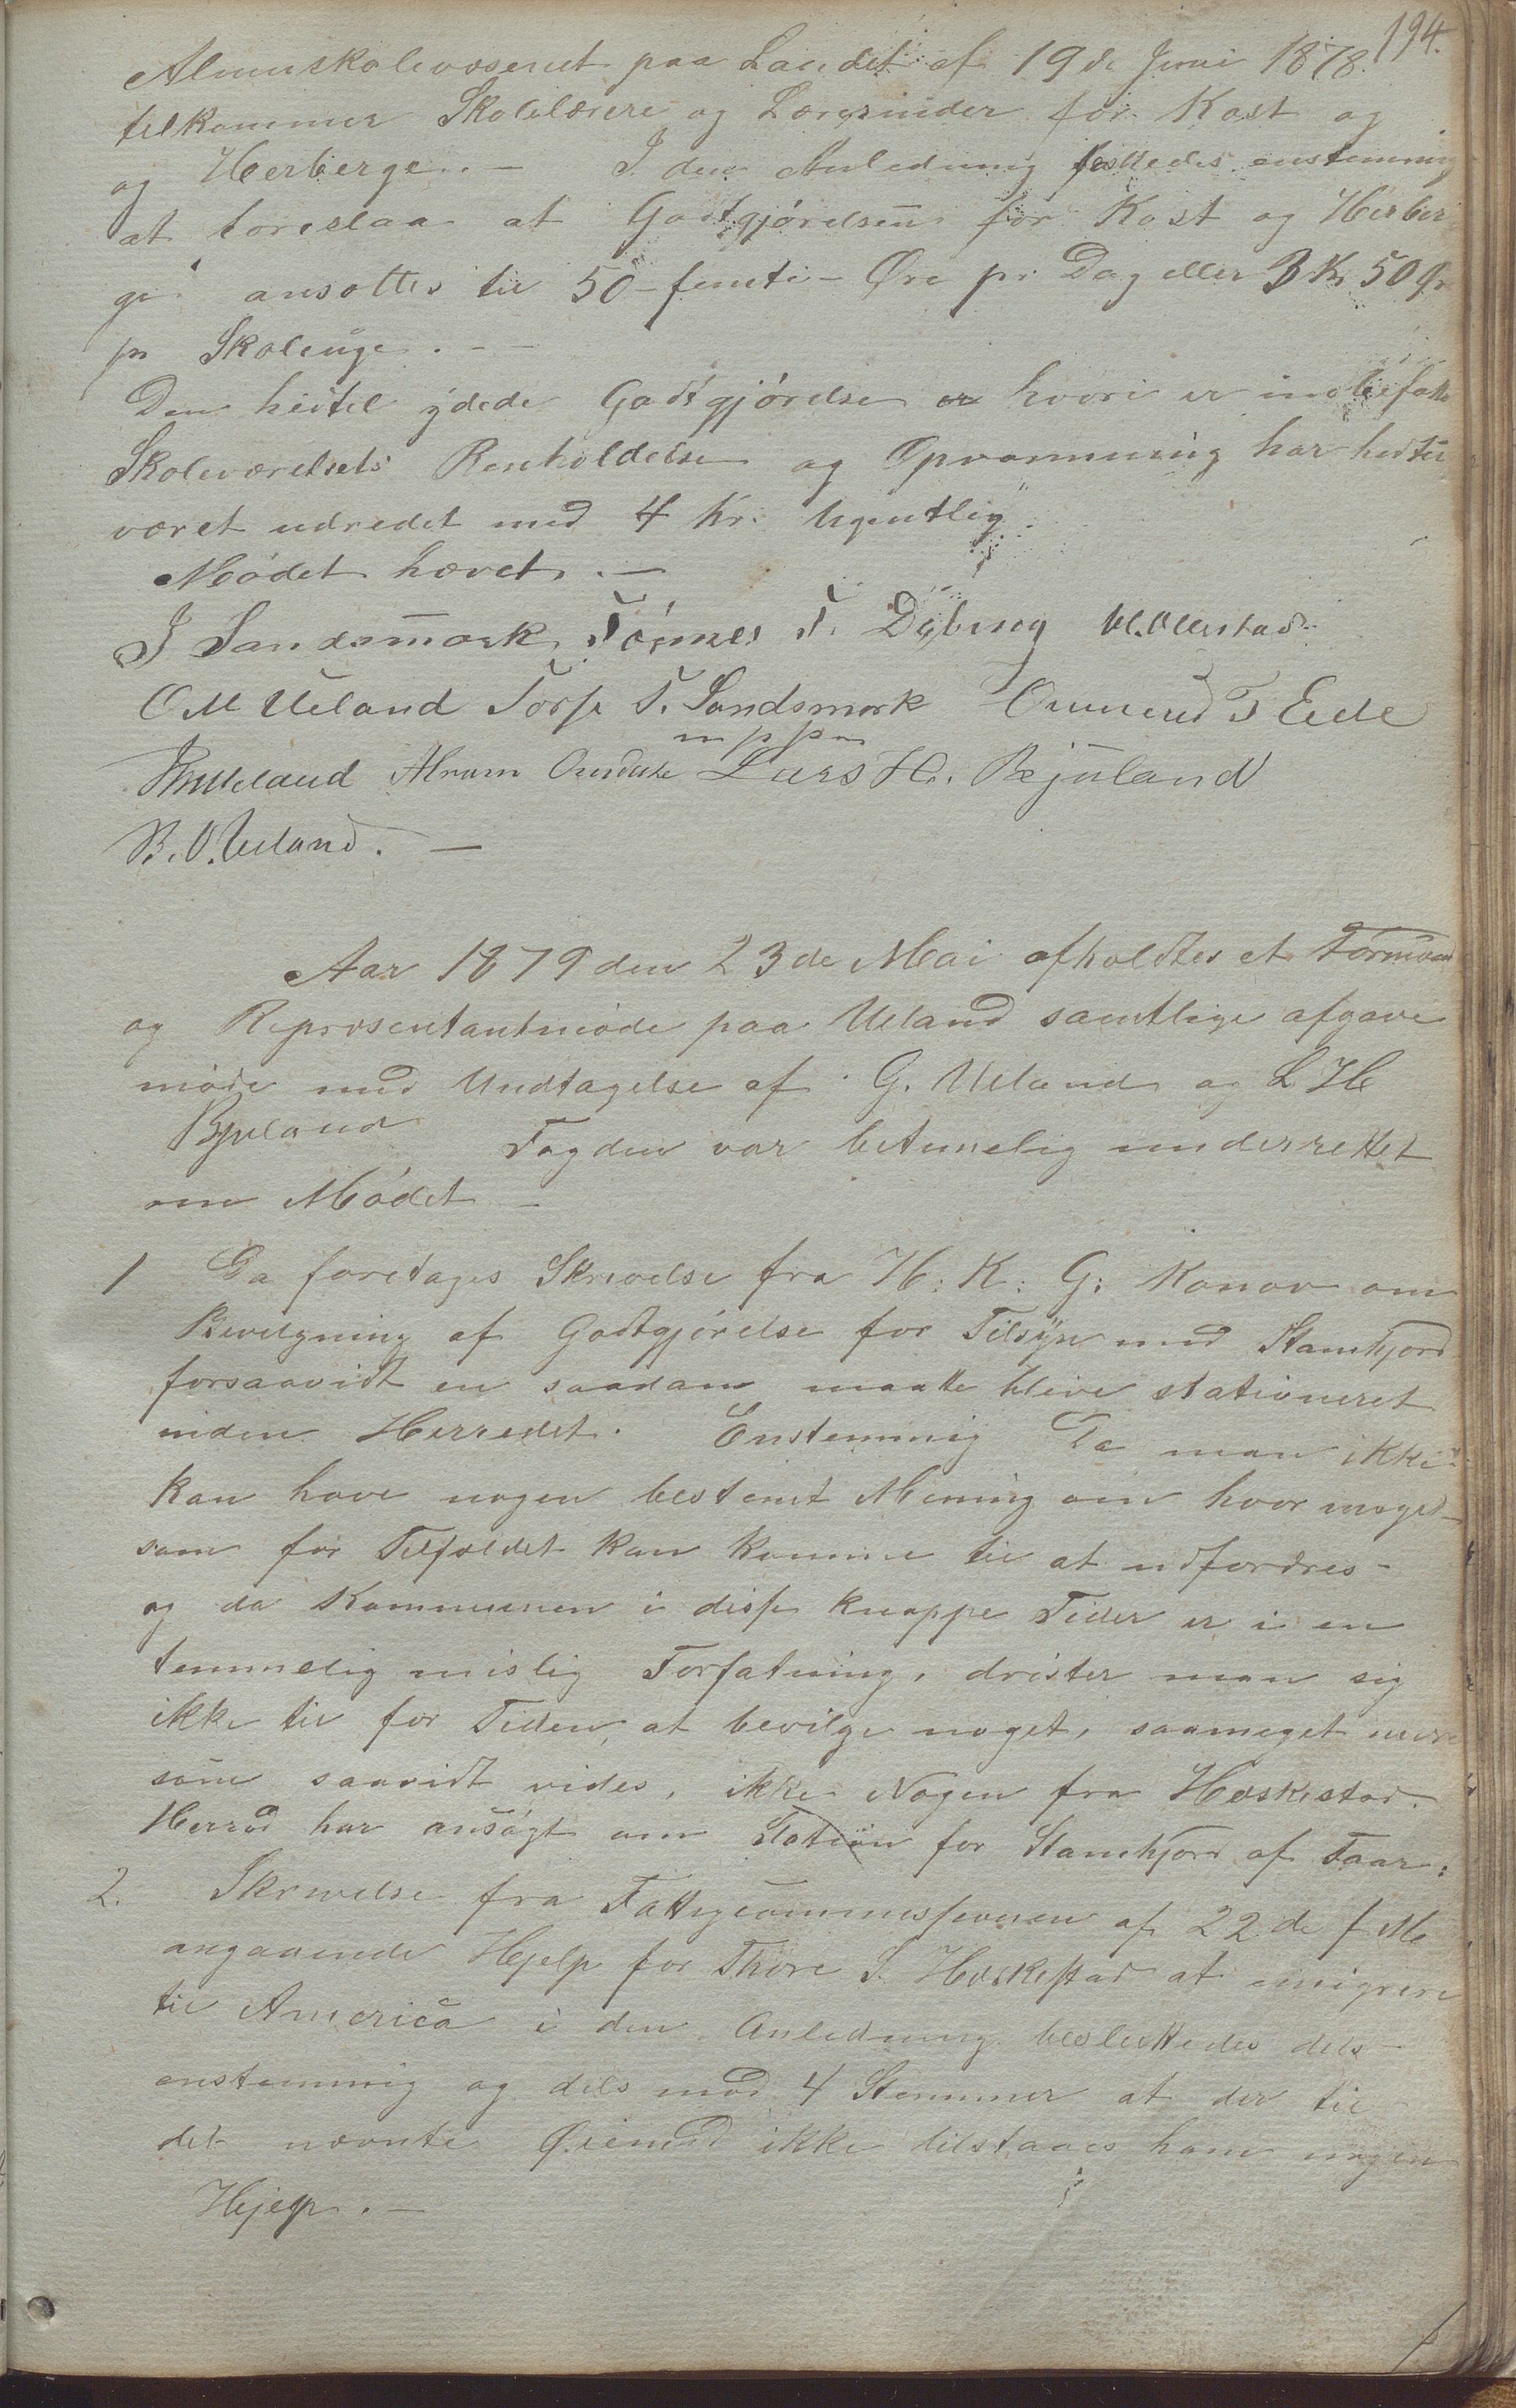 194.
Almuskolevæsenet paa Landet af 19de Juni 1878.
tilkommer Skolelærere og Lærerinder for Kost og
og Herberge. — I den Anledning fattedes enstemmig
at foreslaa at Godtgjörelsen for Kost og Herber
ge ansættes til 50 - femti - Øre pr. Dag eller 3 Kr 50 Ør
pr Skoleuge. —
Den hidtil ydede Godtgjörelse er hvori er indbefatte
Skoleværelsets Renholdelse og Opvarmning har hidtil
været udredet med 4 Kr. Ugentlig.
Mödet hævet. —
J Sandsmark Tönnes T. Döbing
O M Ueland Torje T. Sandsmark Ommund T Eide
m p p
Ueland Abram Lars H. Bjuland
B. O. Ueland. —
Aar 1879 den 23de Mai afholdtes et Formand
og Repræsentantmöde paa Ueland samtlige afgave
möde med Undtagelse af G. Ueland og L H
Bjuland Fogden var betimelig underrettet
om Mödet —
1 Da foretages Skrivelse fra H: K: G: Konow om
Bevilgning af Godtgjörelse for Tilsyn med Stamhjord
forsaavidt en saadan maatte blive stationeret
inden Herredet. Enstemmig Da man ikke
kan have nogen bestemt Mening om hvor meget
som for Tilfældet kan komme til at udfordres -
og da Kommunen i disse knappe Tider er i en
temmelig mislig Forfatning, drister man sig
ikke til for Tiden, at bevilge noget, saameget mere
som saavidt vides, ikke Nogen fra Heskestad
Herred har ansögt om Station for Stamhjord af Faar:
2. Skrivelse fra Fattigcommissionen af 22de f M
angaaende Hjelp for Thore S. Heskestad at emigrere
til America i den Anledning besluttedes dels
enstemmig og dels mod 4 Stemmer at der til
det nævnte Øiemed ikke tilstaaes ham nogen
Hjelp. —